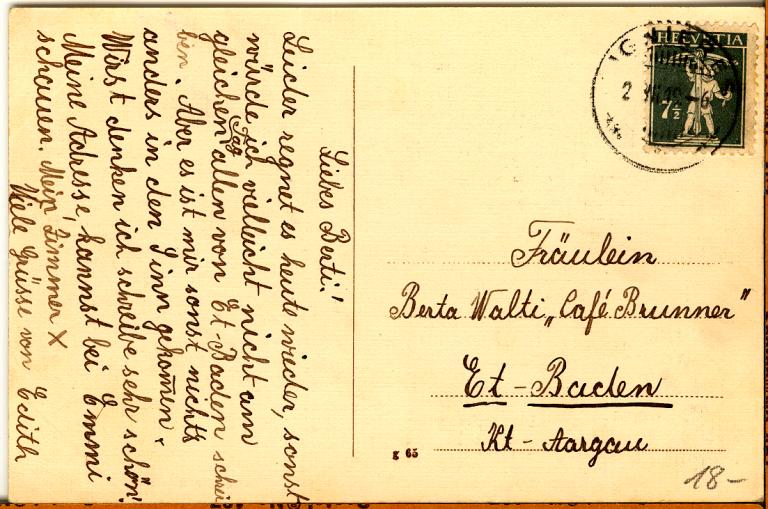 Liebes Berti!
Leider regnet es heute wieder, sonst
würde ich vielleicht nicht am
gleichen Tag allen von Et-Baden schrei
ben. Aber es ist mir sonst nichts
anders in den Sinn gekom̅en.
Wirst denken ich schreibe sehr schön!
Meine Adresse kannst bei Emmi
schauen. Mein Zimmer X
Viele Grüsse von Edith
HELVETIA
7½
Fräulein
Berta Walti „Café Brunner"
Et-Baden
Kt-Aargau
g 65
18-